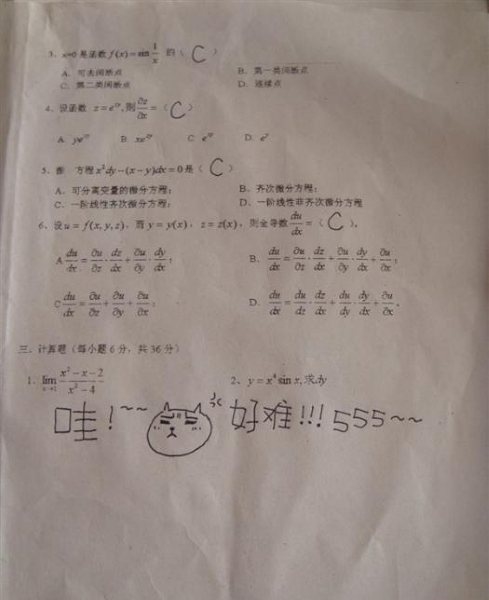 3、x=0 是函数 f(x)=sin 1/x 的（ C ）
A. 可去间断点 B. 第一类间断点
C. 第二类间断点 D. 连续点
4、设函数 z=e^{xy},则 ∂z/∂x =（ C ）
A. ye^{xy} B. xe^{xy} C. e^{xy} D. e^y
5、 方程 x²dy-(x-y)dx=0 是（ C ）
A、可分离变量的微分方程; B、齐次微分方程;
C、一阶线性齐次微分方程; D、一阶线性非齐次微分方程;
6、设 u = f(x, y, z)，而 y = y(x)，z = z(x)，则全导数 du/dx =（ C ）。
A du/dx = ∂u/∂z · dz/dx + ∂u/∂y · dy/dx; B、du/dx = ∂u/∂z · dz/dx + ∂u/∂y · dy/dx + ∂u/∂x;
C du/dx = ∂u/∂z + ∂u/∂y + ∂u/∂x; D、du/dx = du/dz · dz/dx + du/dy · dy/dx + ∂u/∂x。
三、计算题（每小题 6 分，共 36 分）
1. lim (x²-x-2)/(x²-4) 2、y = x⁴ sin x, 求 dy
哇!~~ 好难!!! 555~~